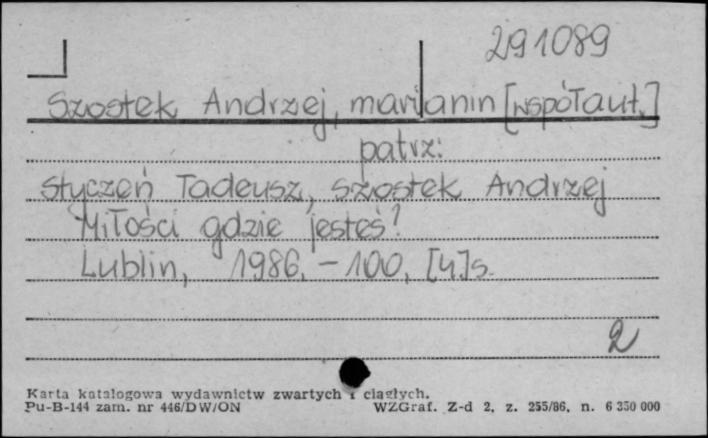 291089
Szostek Andrzej, marianin [współaut.]
patrz:
Styczeń Tadeusz, Szostek Andrzej
Miłości gdzie jesteś?
Lublin, 1986. – 100, [4]s.
2
Karta katalogowa wydawnictw zwartych i ciągłych.
Pu-B-144 zam. nr 446/DW/ON WZGraf. Z-d 2, z. 255/86, n. 6 350 000